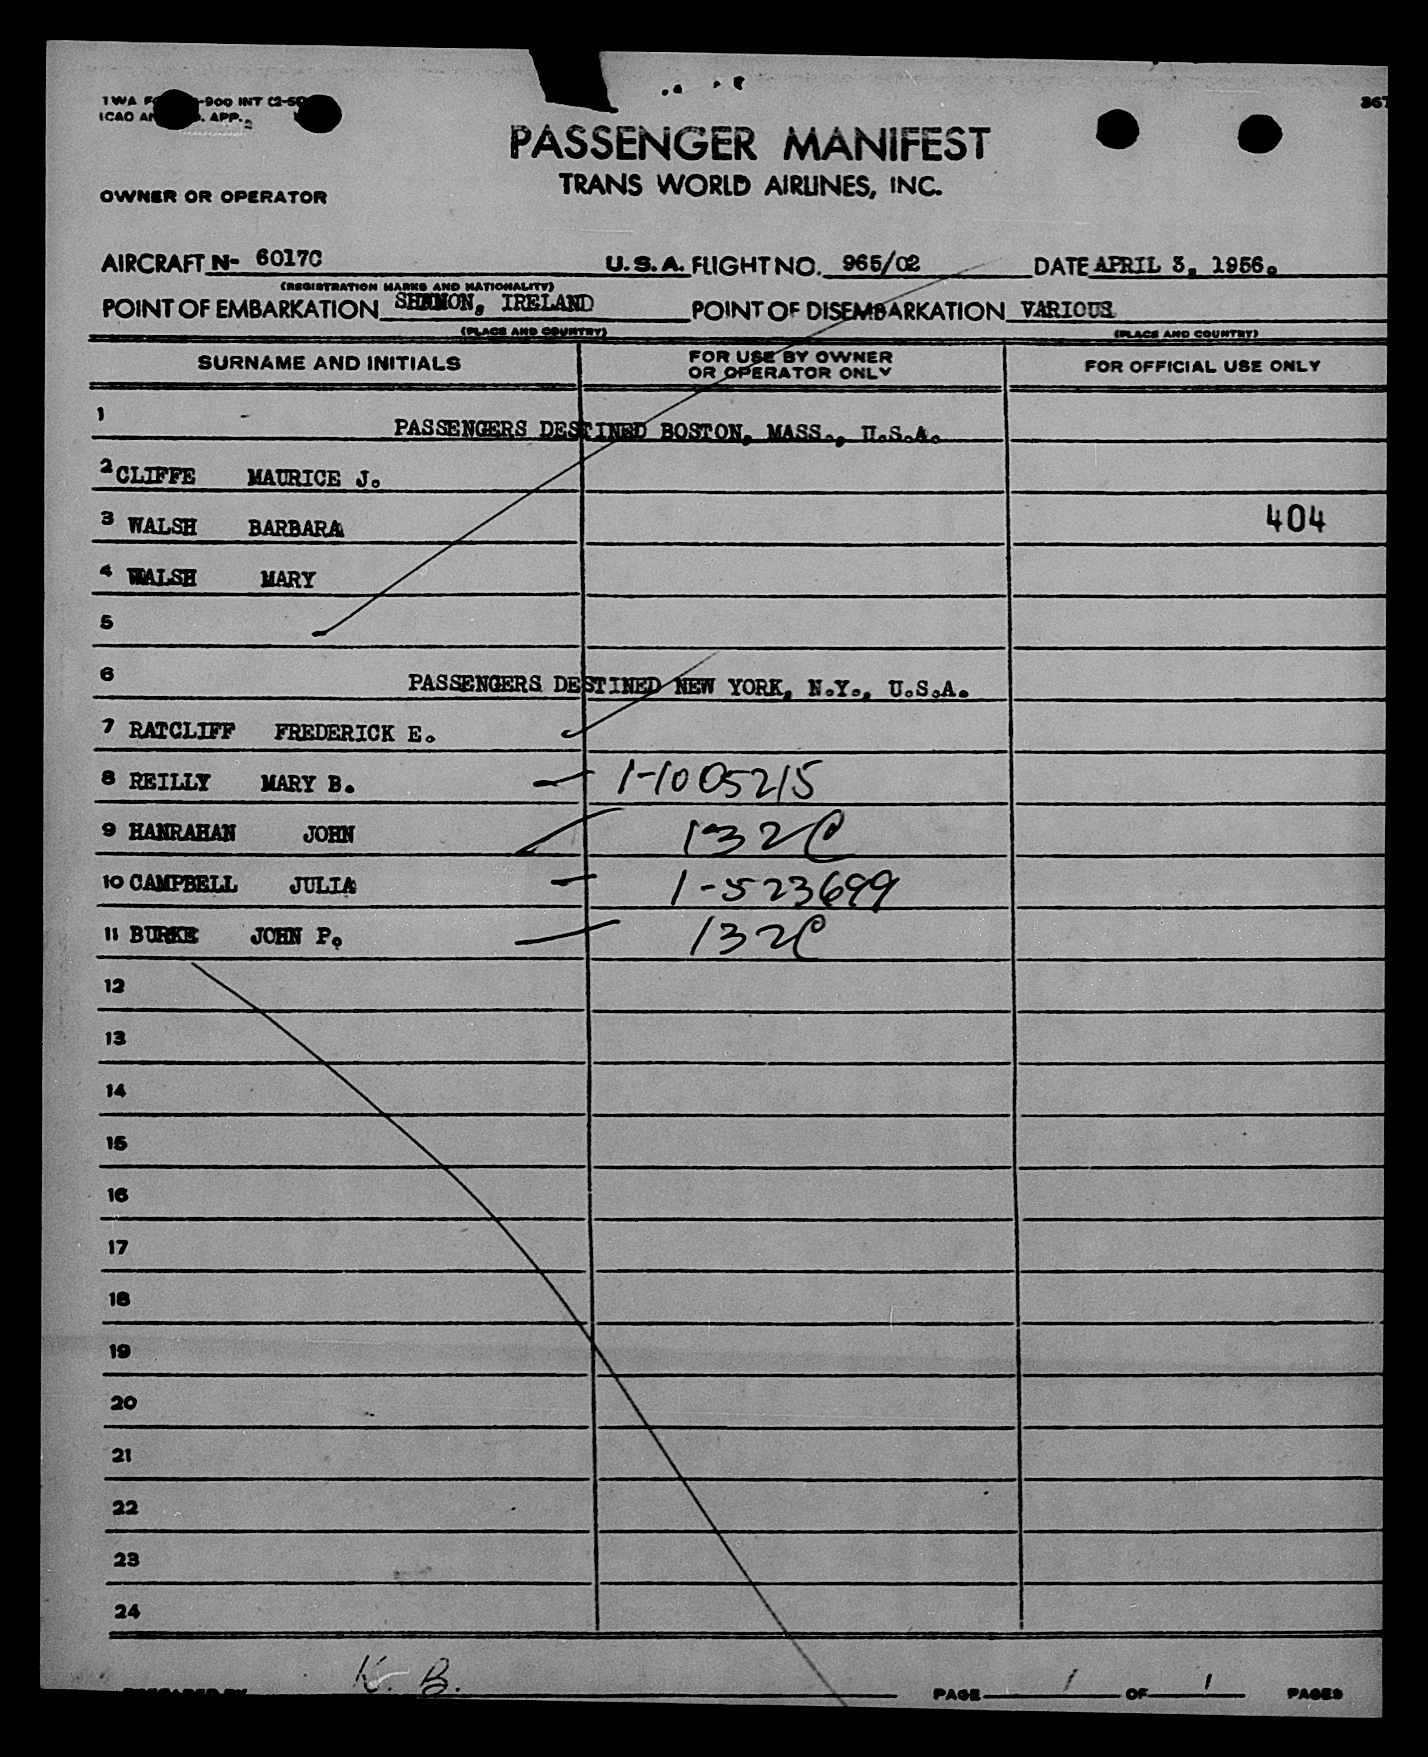 TWA F -900 INT (2-5
ICAO AN . APP.
367
PASSENGER MANIFEST
TRANS WORLD AIRLINES, INC.
OWNER OR OPERATOR
AIRCRAFT N- 6017C U.S.A. FLIGHT NO. 965/02 DATE APRIL 3, 1956.
(REGISTRATION MARKS AND NATIONALITY)
POINT OF EMBARKATION SHANNON, IRELAND POINT OF DISEMBARKATION VARIOUS
(PLACE AND COUNTRY) (PLACE AND COUNTRY)
SURNAME AND INITIALS FOR USE BY OWNER OR OPERATOR ONLY FOR OFFICIAL USE ONLY
1 PASSENGERS DESTINED BOSTON, MASS., U.S.A.
2 CLIFFE MAURICE J.
3 WALSH BARBARA 404
4 WALSH MARY
5
6 PASSENGERS DESTINED NEW YORK, N.Y., U.S.A.
7 RATCLIFF FREDERICK E.
8 REILLY MARY B. 1-1005215
9 HANRAHAN JOHN 132C
10 CAMPBELL JULIA 1-523699
11 BURKE JOHN P. 132C
12
13
14
15
16
17
18
19
20
21
22
23
24
PREPARED BY K. B. PAGE 1 OF 1 PAGES